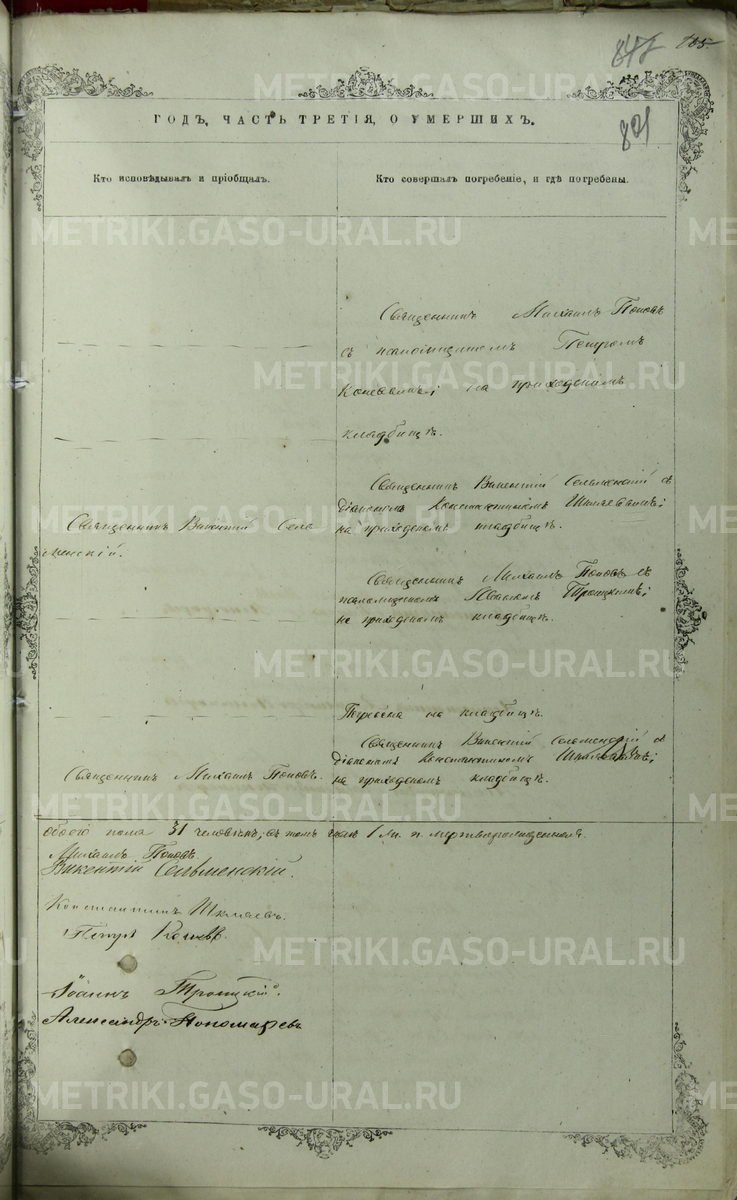 847
105
821
ГОДЪ, ЧАСТЬ ТРЕТІЯ, О УМЕРШИХЪ.
Кто исповѣдывалъ и пріобщалъ.
Кто совершалъ погребеніе, и гдѣ погребены.
Священникъ Михаилъ Поповъ
съ псаломщикомъ Петромъ
на приходскомъ
кладбищѣ.
Священникъ Викентій Сельменскій съ
діакономъ Константиномъ Ишмаевымъ;
на приходскомъ кладбищѣ.
Священникъ Викентій Сель
менскій.
Священникъ Михаилъ Поповъ съ
псаломщикомъ Іоанномъ Троицкимъ;
на приходскомъ кладбищѣ.
Погребена на кладбищѣ.
Священникъ Викентій Сельменскій съ
діакономъ Константиномъ
Священникъ Михаилъ Поповъ.
на приходскомъ кладбищѣ.
обоего пола 31 человѣкъ; въ томъ числѣ 1 м. п. мертворожденнаго.
Михаилъ Поповъ
Викентій Сельменскій.
Константинъ Ишмаевъ.
Петръ
Іоаннъ Троицкій.
Александръ Пономаревъ
METRIKI.GASO-URAL.RU